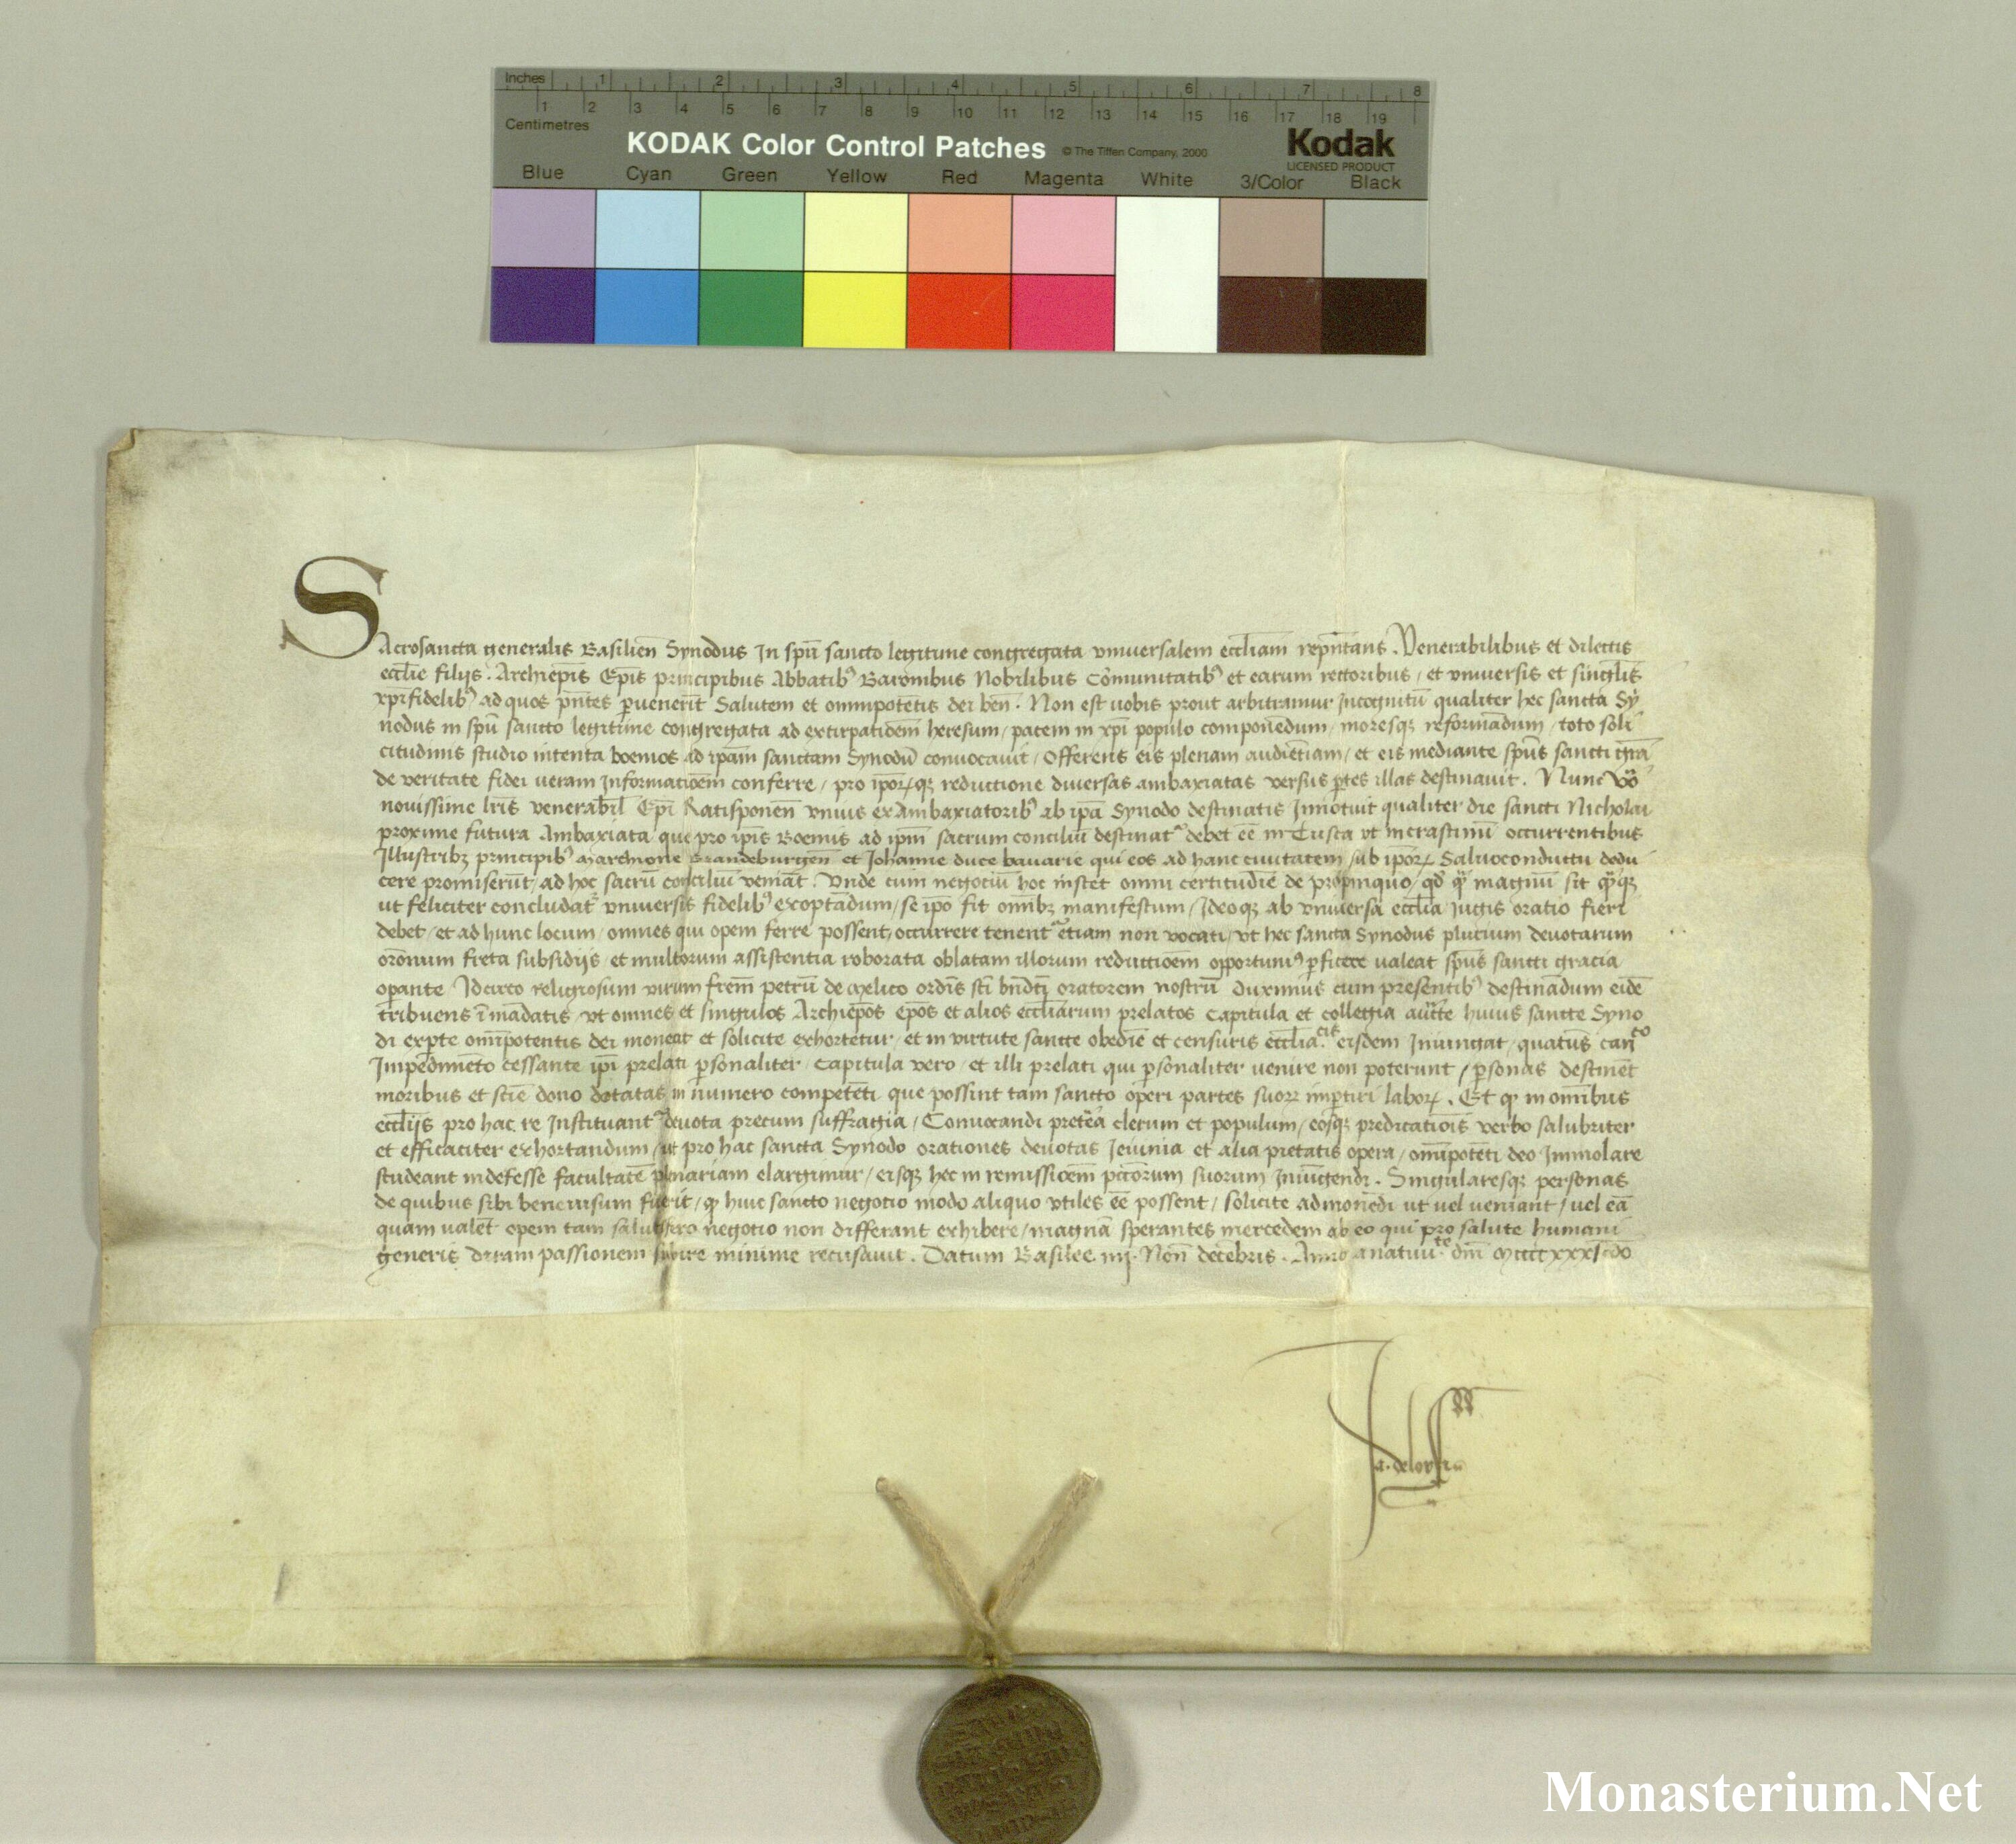 Inches 1 2 3 4 5 6 7 8
1 2 3 4 5 6 7 8 9 10 11 12 13 14 15 16 17 18 19
Centimetres
KODAK Color Control Patches © The Tiffen Company, 2000 Kodak
LICENSED PRODUCT
Blue Cyan Green Yellow Red Magenta White 3/Color Black
Sacrosancta generalis Basilien̄ Synodus In spū sancto legitime congregata vniuersalem eccl̄iam repn̄tans . Venerabilibus et dilectis
eccl̄ie filijs . Archiep̄is Ep̄is principibus Abbatib᾽ Baronibus Nobilibus Cōmunitatib᾽ et earum rectoribus / et vniuersis et singl̄is
xp̄ifidelib᾽ ad quos pn̄tes ꝑuenerīt Salutem et omnipotētis dei ben̄ . Non est uobis prout arbitramur Incognitū qualiter hec sancta Sy
nodus in spū sancto legitime congregata ad extirpatiōem heresum / pacem in xp̄i populo componēdum / moresqꝫ reformādum / toto soli
citudinis studio intenta boemos ad ip̄am sanctam Synodū conuocauit / Offerens eis plenam audiētiam / et eis mediante spūs sancti grā
de veritate fidei ueram Informatiōem conferre / pro ip̄oꝝqꝫ reductione diuersas ambaxiatas versus ꝑtes illas destinauit . Nunc vō
nouissime lr̄is venerabil̄ Ep̄i Ratisponen̄ vnius ex Ambaxiatorib᾽ ab ip̄a Synodo destinatis Innotuit qualiter die sancti Nicholai
proxime futura Ambaxiata que pro ip̄is Boemis ad ip̄m sacrum conciliū destinat᾽ debet eē in Cusca vt incrastinū occurrentibus
Illustribꝫ principib᾽ Marchione Brandeburgen̄ et Johanne duce bauarie qui eos ad hanc ciuitatem sub ip̄oꝝ Saluoconductu dedu
cere promiserūt / ad hoc sacrū conciliū veniāt . Vnde cum negociū hoc instet omni certitudīe de propinquo / qd̄ qͣ magnū sit qͣqꝫ
ut feliciter concludat᾽ vniuersis fidelib᾽ exoptādum / se ip̄o fit om̄ibꝫ manifestum / Ideoqꝫ ab vniuersa eccl̄ia Jugis oratio fieri
debet / et ad hunc locum / omnes qui opem ferre possent / occurrere tenent᾽ etiam non vocati / vt hec sancta Synodus plurium deuotarum
orōnum freta subsidijs et multorum assistentia roborata oblatam illorum reductiōem opportuni᾽ ꝑficere ualeat spūs sancti gracia
oꝑante Idcirco religiosum virum frēm petrū de Melico ordīs sc̄i bn̄dc̄i oratorem nostrū Duximus cum presentib᾽ destinādum eidē
tribuens ī mādatis / vt omnes et singulos Archiep̄os ep̄os et alios eccl̄iarum prelatos Capitula et collegia auc̄te huius sancte Syno
di ex ꝑte om̄ipotentis dei moneat et solicite exhortetur / et in virtute sancte obedīe et censuris eccl̄iacis eisdem Iniungat / quatūs canco
Impedimēto cessante ip̄i prelati ꝑsonaliter / Capitula vero / et illi prelati qui ꝑsonaliter uenire non poterunt / ꝑsonas destinēt
moribus et sciē dono dotatas in numero competēti que possint tam sancto operi partes suoꝝ imꝑtiri laboꝝ . Et ꝙ in om̄ibus
eccl̄ijs pro hac re Instituant᾽ deuota precum suffragia / Conuocandi pretēa clerum et populum / eosqꝫ predicatiōis verbo salubriter
et efficaciter exhortandum / ut pro hac sancta Synodo orationes deuotas Ieiunia et alia pietatis opera / om̄ipotēti deo Immolare
studeant indefesse facultatē plenariam elargimur / eisqꝫ hec in remissiōem pcc̄orum suorum Iniūgendi . Singularesqꝫ personas
de quibus sibi bene uisum fuerit / ꝙ huic sancto negotio modo aliquo vtiles eē possent / solicite admonēdi ut uel ueniant / uel eā
quam ualēt opem tam salutifero negotio non differant exhibere / magnā sperantes mercedem ab eo qui pro salute humani
generis diram passionem subire minime recusauit . Datum Basilee iiij . Non̄ decēbris . Anno anatiuite dn̄i Mccccxxxijdo
Monasterium.Net